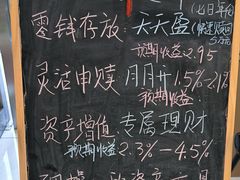 (七日年化)
零钱存放：天天盈 (快速赎回
5万元)
预期收益：2.95
灵活申赎：月月升 1.5%-2.1%
预期收益：
资产增值 专属理财
预期收益：2.3%-4.5%